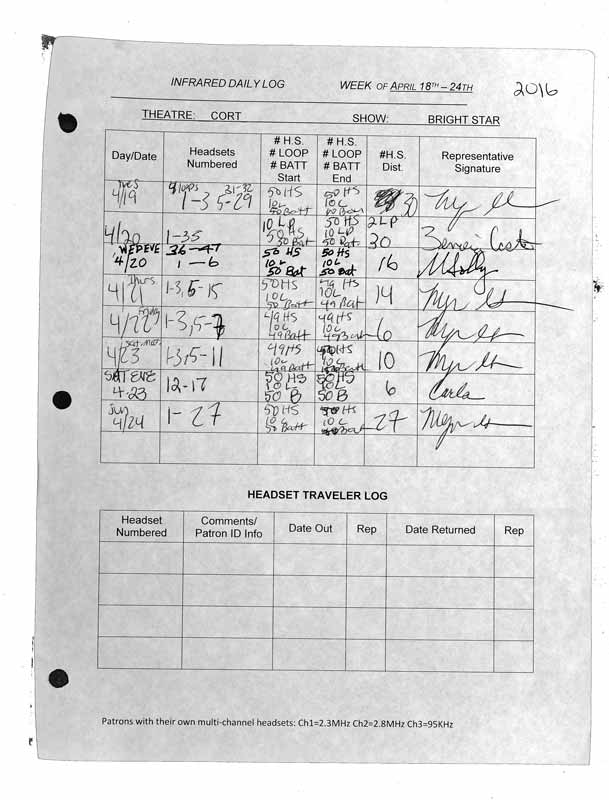 INFRARED DAILY LOG WEEK OF APRIL 18TH – 24TH 2016
THEATRE: CORT SHOW: BRIGHT STAR
Day/Date Headsets Numbered # H.S. # LOOP # BATT Start # H.S. # LOOP # BATT End #H.S. Dist. Representative Signature
Tues 4/19 1-3 5-29 31-32 50 HS 10L 50 Batt 50 HS 10L 30
4/20 1-35 10 LP 50 HS 50 Bat 50 HS 10 LP 50 Bat. 2 LP 30
WED EVE 4/20 36-47 1-6 50 HS 10 L 50 Bat 50 HS 10 L 50 Bat 16
Thurs 4/21 1-3, 5-15 50 HS 10L 50 Batt 49 HS 10L 49 Batt 14
4/22 1-3, 5-7 49 HS 10L 49 Batt 49 HS 10L 49 Batt 6
4/23 sat. mat. 1-3, 5-11 49 HS 10L 49 Batt 10
SAT EVE 4-23 12-17 50 HS 10 L 50 B 50 HS 10 L 50 B 6 Carla
Sun 4/24 1-27 50 HS 10L 50 Batt HS 10L 27
HEADSET TRAVELER LOG
Headset Numbered Comments/ Patron ID Info Date Out Rep Date Returned Rep
Patrons with their own multi-channel headsets: Ch1=2.3MHz Ch2=2.8MHz Ch3=95KHz